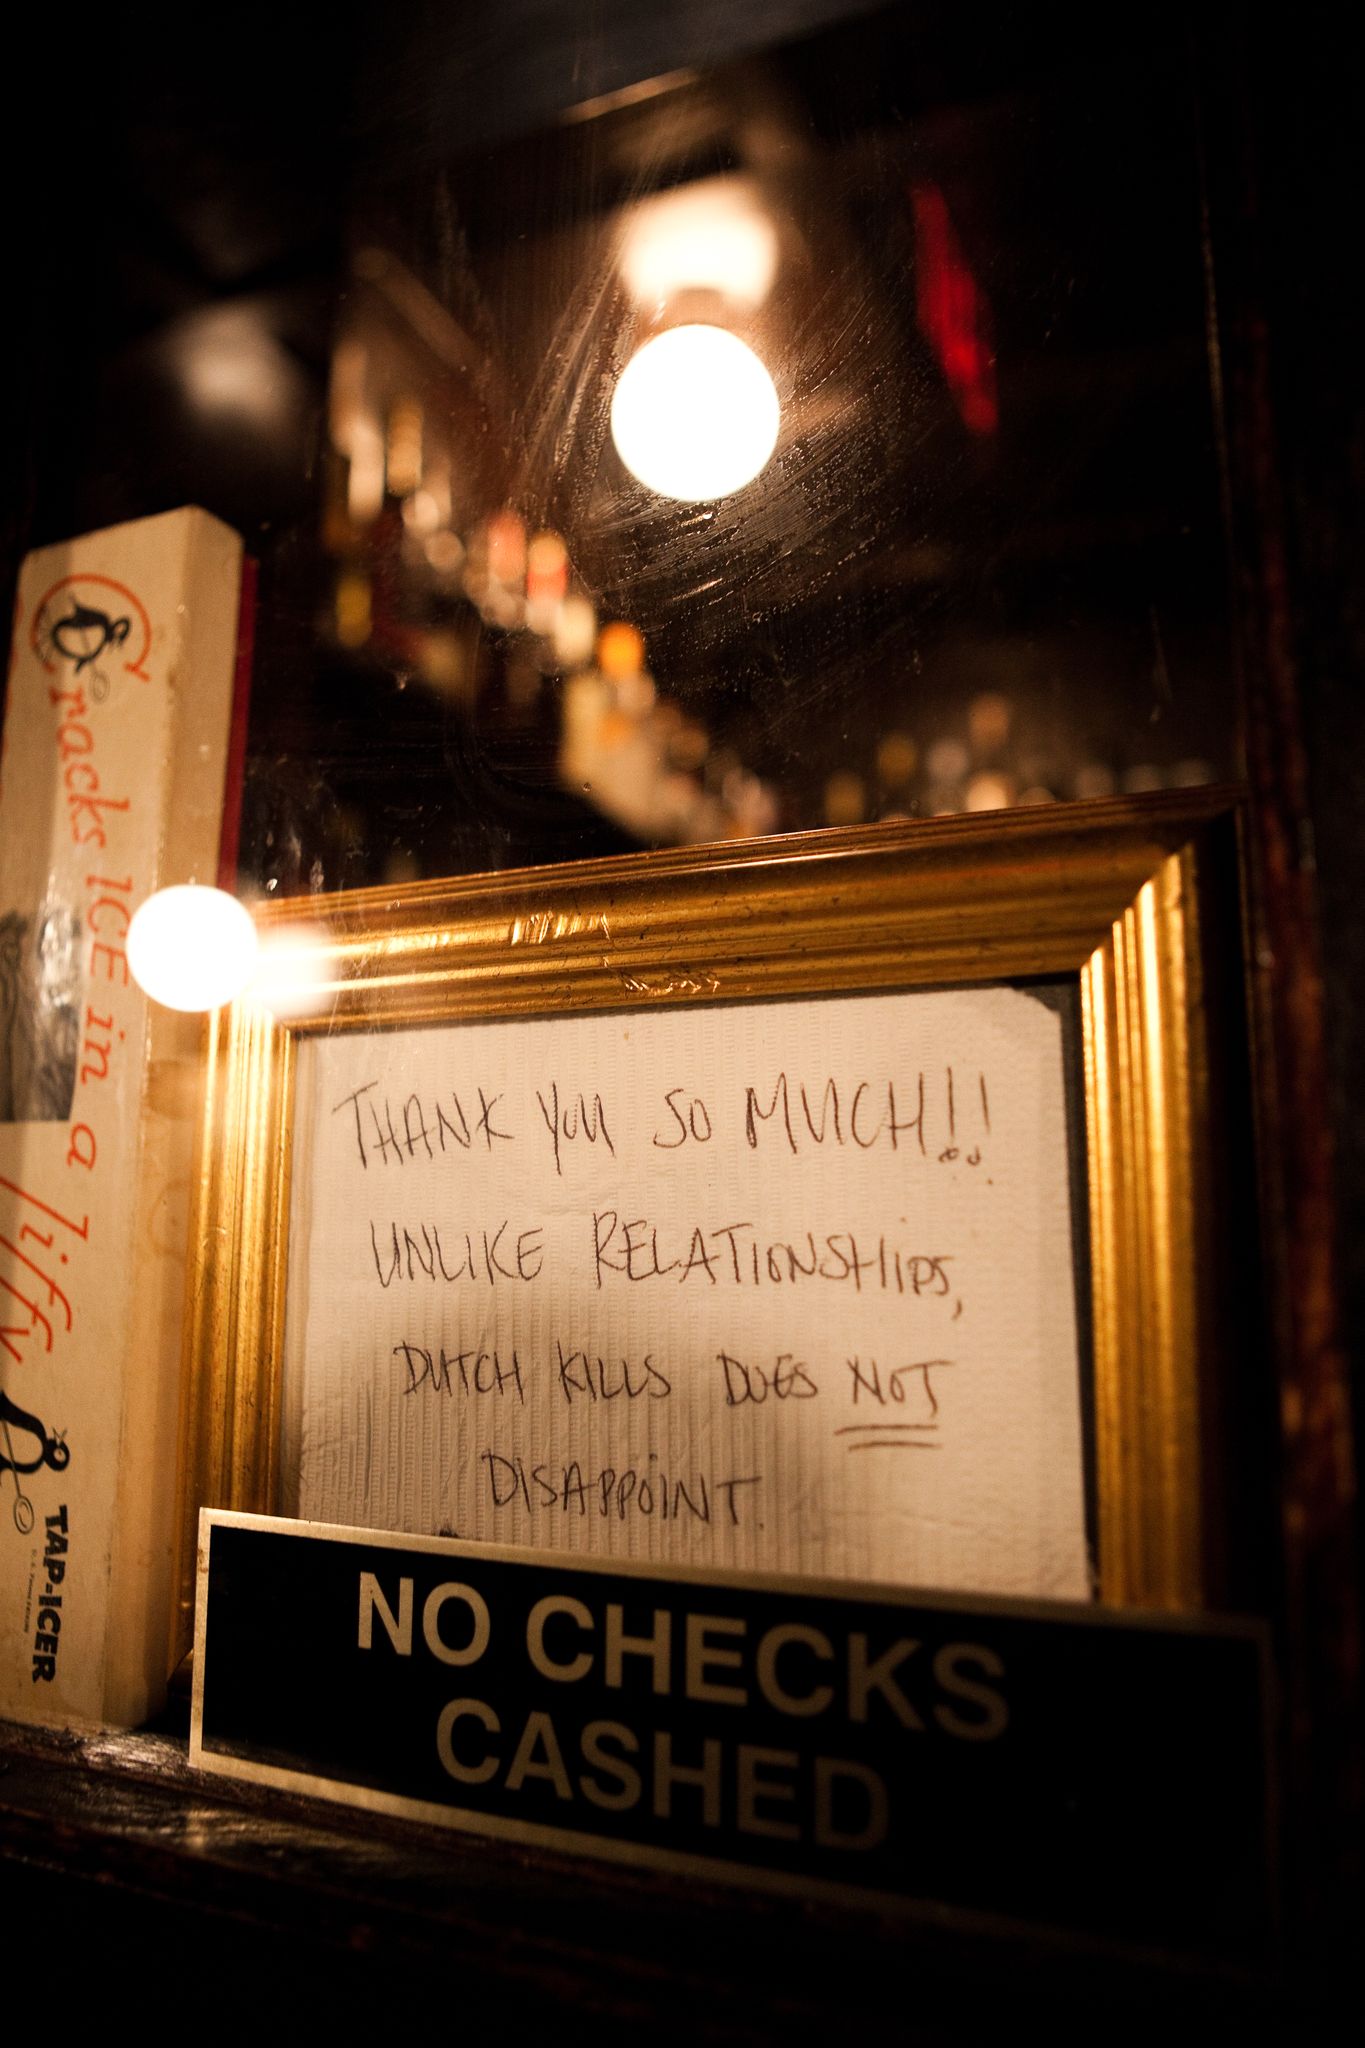 Cracks ICE in a jiffy
TAP-ICER
THANK YOU SO MUCH!!
UNLIKE RELATIONSHIPS,
DUTCH KILLS DOES NOT
DISAPPOINT.
NO CHECKS
CASHED